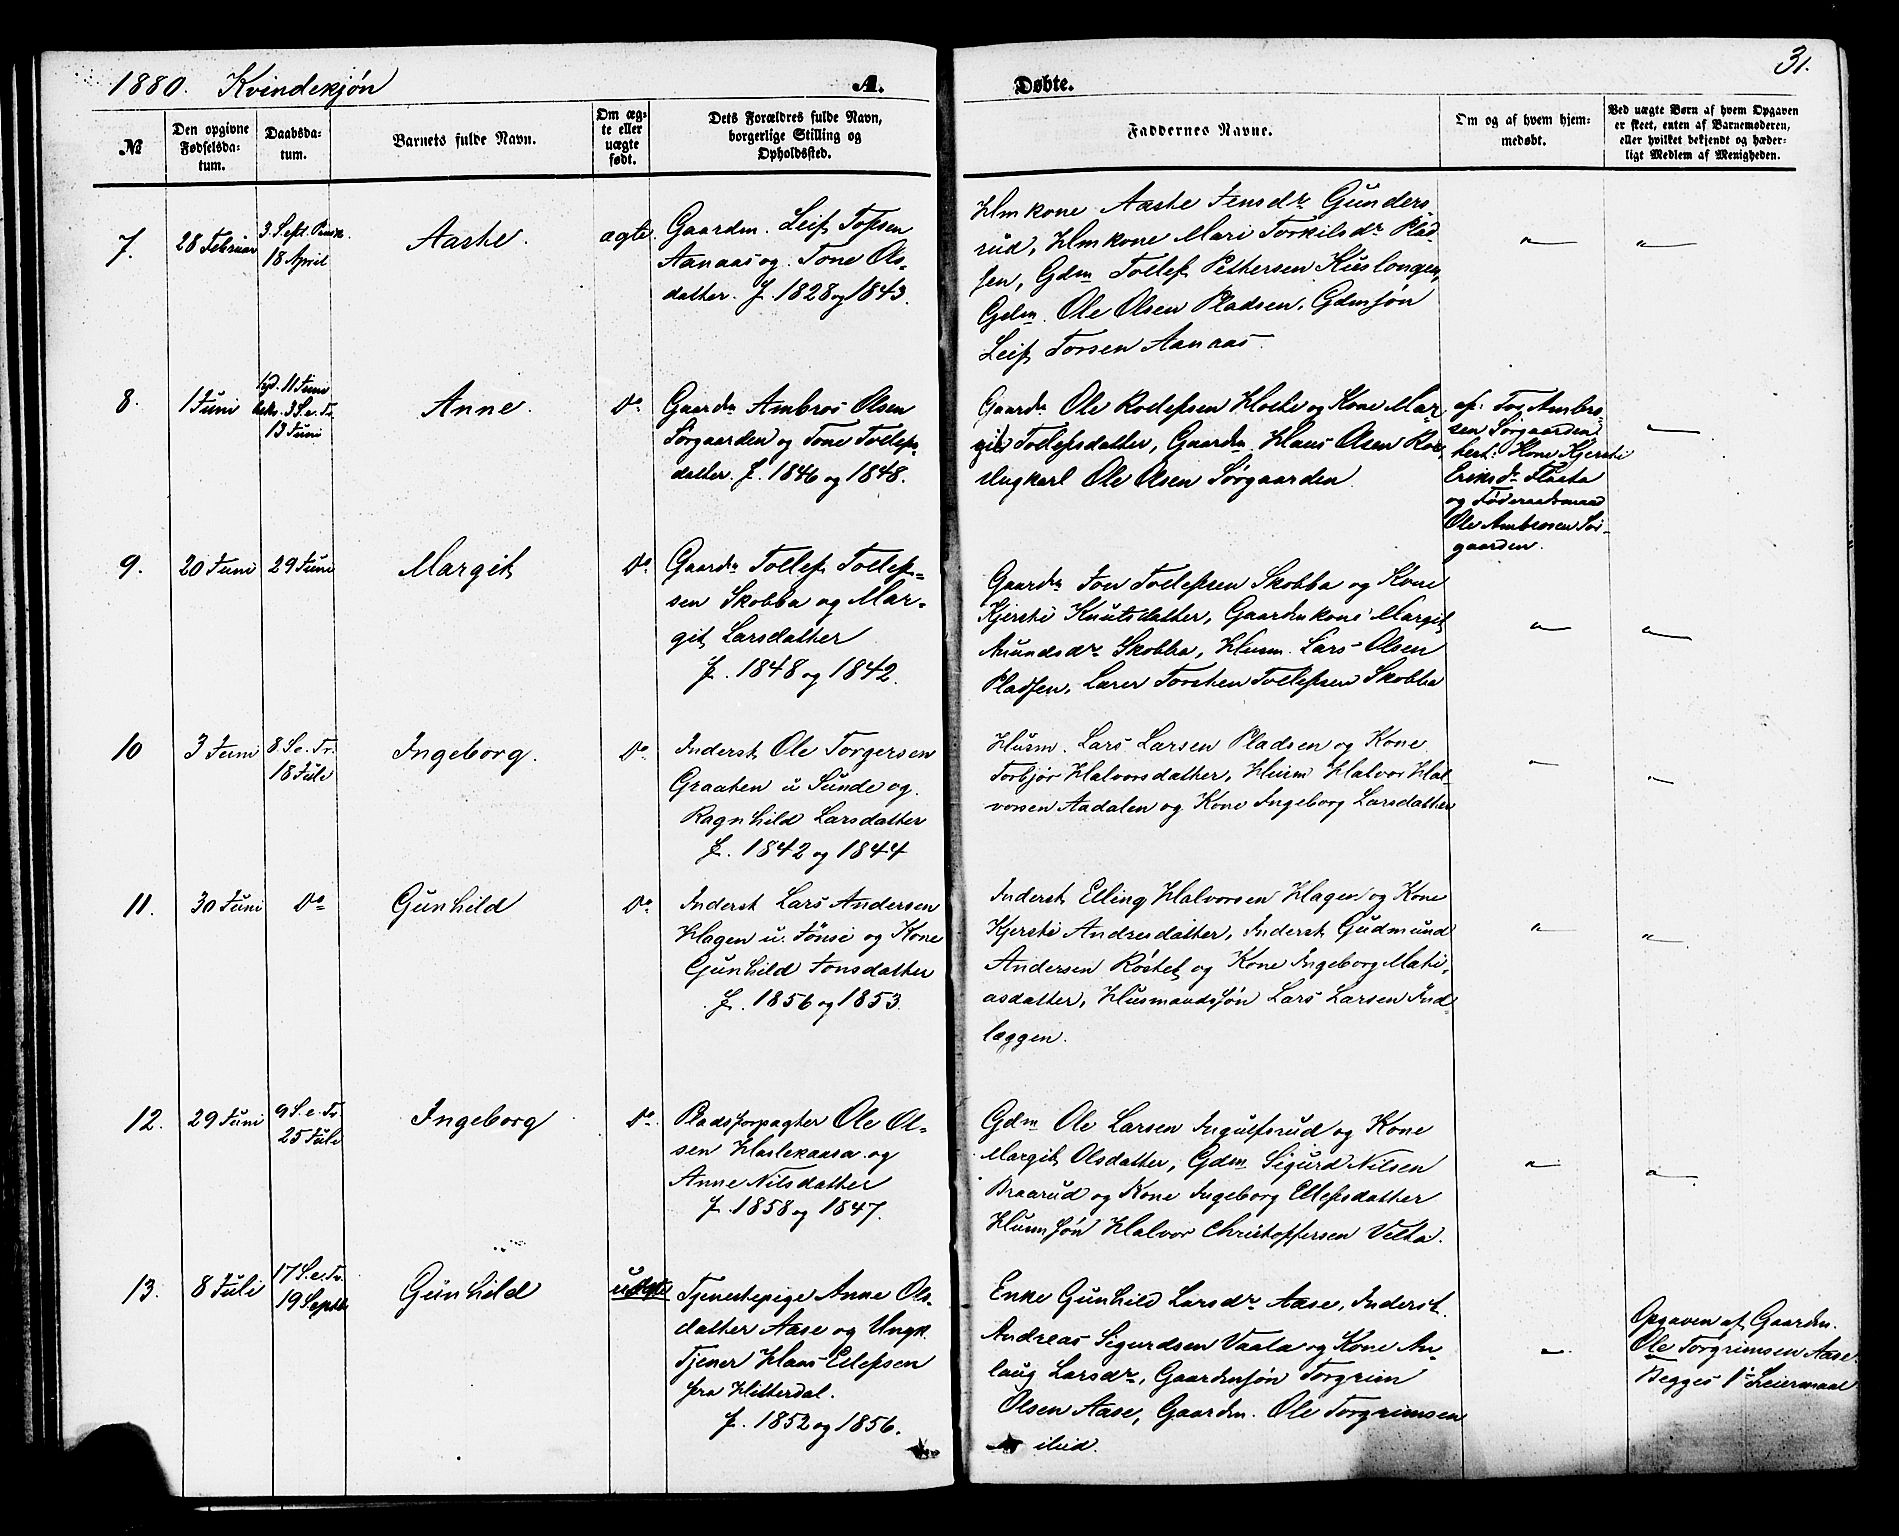 31.
1880. Kvindekjøn
A.
Døbte.
№
Den opgivne
Fødselsda-
tum.
Daabsda-
tum.
Barnets fulde Navn.
Om æg-
te eller
uægte
født.
Dets Forældres fulde Navn,
borgerlige Stilling og
Opholdssted.
Faddernes Navne.
Om og af hvem hjem-
medøbt.
Ved uægte Børn af hvem Opgaven
er skeet, enten af Barnemoderen,
eller hvilket bekjendt og hæder-
ligt Medlem af Menigheden.
7.
28 Februar
3. Sept. Paask.
18 April
Aaste.
ægte.
Gaardm. Leif Tofsen
Aanaas og Tone Ols-
datter. f. 1828 og 1843.
Hmkone Aaste Jensdr Gunders
rud, Hmkone Mari Torkilsdr Plad-
sen, Gdm Tollef Pettersen Huslongen,
Gdm. Ole Olsen Pladsen, Gdmsøn
Leif Torsen Aanaas.
"
"
8.
1 Juni
hjd. 11 Juni
bekr. 3 S.e.Tr.
13 Juni
Anne.
Do
Gaardm Ambros Olsen
Sørgaarden og Tone Tollefs-
datter. f. 1846 og 1848.
Gaardm Ole Rolefsen Holte og Kone Mar-
git Tollefsdatter, Gaardm. Hans Olsen Roe,
Ungkarl Ole Olsen Sørgaarden.
af: Tov Ambro-
sen Sørgaarden,
test: Kone Kjersti
Eriksdr Flaata
og Føderaadsmand
Ole Ambrosen Sør-
gaarden.
"
9.
20 Juni
29 Juni
Margit
Do
Gaardm Tollef Tollef-
sen Skobba og Mar-
git Larsdatter
f. 1848 og 1842.
Gaardm Jon Tollefsen Skobba og Kone
Kjersti Knutsdatter, Gaardmkone Margit
Amundsdr Skobba, Husm. Lars Olsen
Pladsen, Lærer Torsten Tollefsen Skobba
"
"
10
3 Juni
8. S.e.Tr.
18 Juli
Ingeborg.
Do
Inderst Ole Torgersen
Graaten u Sunde og
Ragnhild Larsdatter
f. 1842 og 1844
Husm. Lars Larsen Pladsen og Kone
Torbjør Halvorsdatter, Husm Halvor Hal-
vorsen Aadalen og Kone Ingeborg Larsdatter
"
"
11.
30 Juni
Do
Gunhild
Do
Inderst Lars Andersen
Hagen u. Jønsi og Kone
Gunhild Jonsdatter
f. 1856 og 1853.
Inderst Elling Halvorsen Hagen og Kone
Kjersti Andersdatter, Inderst Gudmund
Andersen Røstet og Kone Ingeborg Mati-
asdatter, Husmandssøn Lars Larsen Ind-
læggen.
"
"
12.
29 Juni
9 S.e.Tr.
25 Juli
Ingeborg
Do
Pladsforpagter Ole Ol-
sen Haslekaasa og
Anne Nilsdatter
f. 1858 og 1847.
Gdm Ole Larsen Ingulfsrud og Kone
Margit Olsdatter, Gdm Sigurd Nilsen
Braarud og Kone Ingeborg Ellefsdatter
Husm.søn Halvor Christoffersen Velta.
"
"
13.
8 Juli
17 S.e.Tr.
19 Septb.
Gunhild
uægte
Tjenestepige Anne Ols-
datter Aase og Ungk.
Tjener Hans Ellefsen
fra Hitterdal.
f. 1852 og 1856.
Enke Gunhild Larsdr Aase, Inderst
Andreas Sigurdsen Vaala og Kone An-
laug Larsdr, Gaardmsøn Torgrim
Olsen Aase, Gaardm. Ole Torgrimsen
ibid.
"
Opgaven af Gaardm.
Ole Torgrimsen Aase.
Begges 1ste Leiermaal